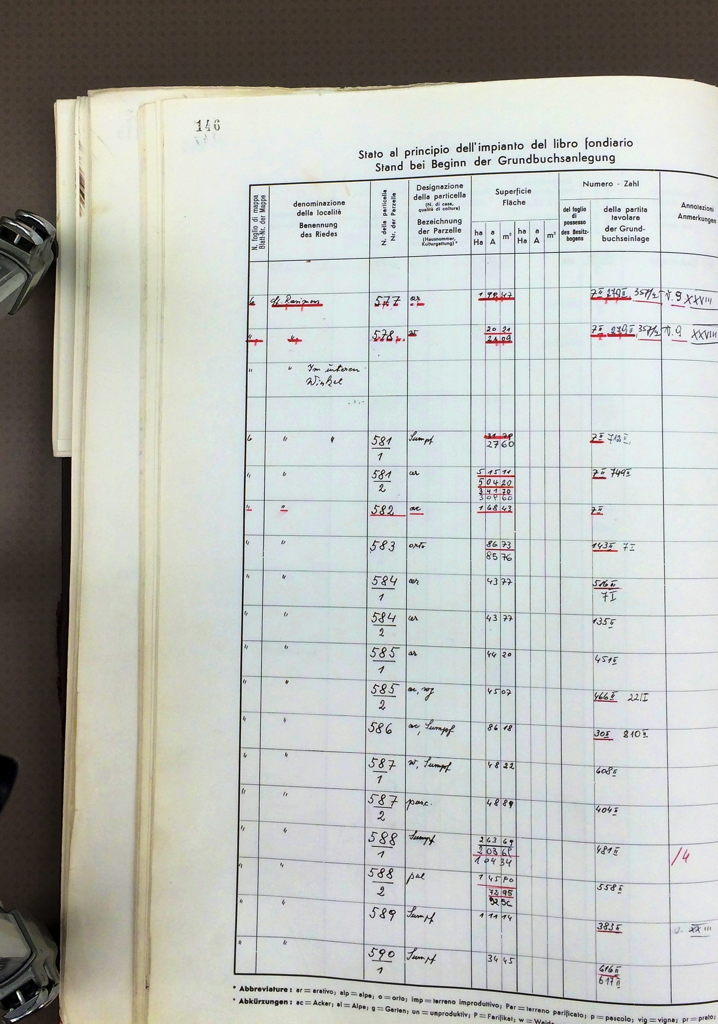 146
Stato al principio dell'impianto del libro fondiario
Stand bei Beginn der Grundbuchsanlegung
N. foglio di mappa
Blatt-Nr. der Mappe
denominazione
della località
Benennung
des Riedes
N. della particella
Nr. der Parzelle
Designazione
della particella
(N. di casa,
qualità di coltura)
Bezeichnung
der Parzelle
(Hausnummer,
Kulturgattung)*
Superficie
Fläche
ha
Ha
a
A
m²
ha
Ha
a
A
m²
Numero - Zahl
del foglio
di
possesso
des Besitz-
bogens
della partita
tavolare
der Grund-
buchseinlage
Annotazioni
Anmerkungen
6 577 ar 1 99 47 7II 279II, 357/2 XXVIII
" " 578 20 21 7II 279II 357/2 XXVIII
24 09
" " Im unteren
Winkel
6 " " 581/1 Sumpf 7II 712II
27 60
" " 581/2 ar 5 15 11 7II 749II
5 04 20
3 04 60
" " 582 ac 1 68 43 7II
" " 583 orto 86 73 143II 7I
85 76
" " 584/1 ar 43 77 516II
7I
" " 584/2 ar 43 77 135II
" " 585/1 ar 44 20 451II
" " 585/2 ar, 45 07 466II 221I
" " 586 ac, Sumpf 86 18 30II 810II
" " 587/1 w, Sumpf 48 22 608II
" " 587/2 pasc. 48 89 404II
" " 588/1 Sumpf 2 63 69 481II /4
2 03 65
1 04 34
" " 588/2 pal 1 45 80 558II
72 95
" " 589 Sumpf 1 11 14 383II XXIII
" " 590/1 Sumpf 34 45 616II
617II
* Abbreviature: ar = arativo; alp = alpe; o = orto; imp = terreno improduttivo; Par = terreno parificato; p = pascolo; vig = vigna; pr = prato;
* Abkürzungen: ac = Acker; al = Alpe; g = Garten; un = unproduktiv; P = Parifikat; w = Weide